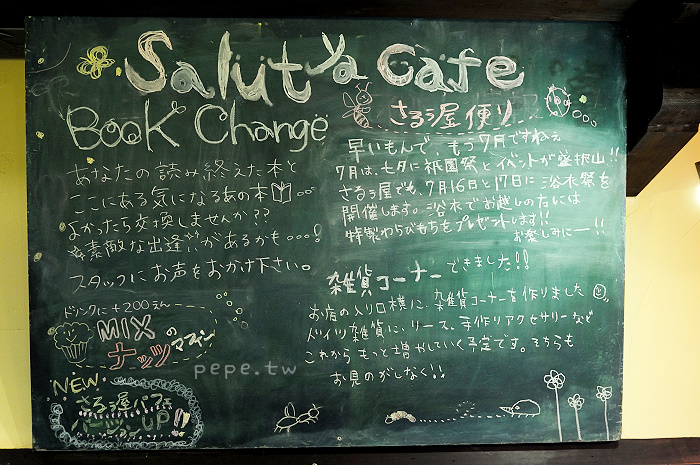 Salut ya Cafe
Book Change
あなたの読み終えた本と
ここにある気になるあの本
よかったら交換しませんか??
素敵な出逢いがあるかも…!
スタッフにお声をおかけ下さい。
ドリンクに+200えん
MIXの
ナッツマフィン
NEW
さるぅ屋パフェ
UP
さるぅ屋便り
早いもんで、もう7月ですねぇ
7月は、七夕に祇園祭とイベントが盛沢山!!
さるぅ屋でも、7月16日と17日に浴衣祭を
開催します。浴衣でお越しの方には
特製わらびもちをプレゼントします!!
お楽しみにー!!
雑貨コーナーできました!!
お店の入り口横に、雑貨コーナーを作りました
ドイツ雑貨に、リース、手作りアクセサリーなど
これからもっと増やしていく予定です。そちらも
お見のがしなく!!
pepe.tw